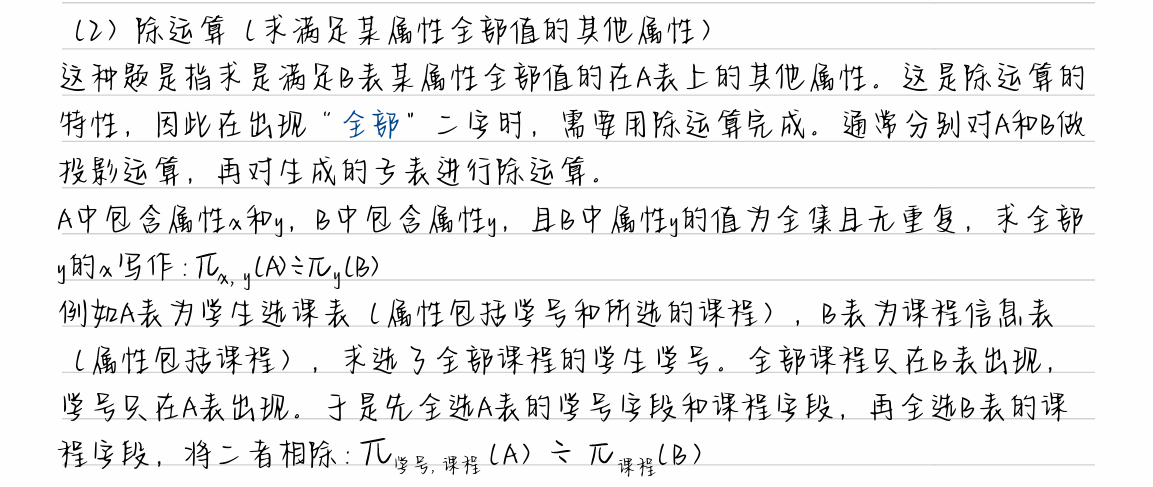 （2）除运算（求满足某属性全部值的其他属性）
这种题是指求是满足B表某属性全部值的在A表上的其他属性。这是除运算的
特性，因此在出现“全部”二字时，需要用除运算完成。通常分别对A和B做
投影运算，再对生成的子表进行除运算。
A中包含属性x和y，B中包含属性y，且B中属性y的值为全集且无重复，求全部
y的x写作：π_{x, y}(A)÷π_{y}(B)
例如A表为学生选课表（属性包括学号和所选的课程），B表为课程信息表
（属性包括课程），求选了全部课程的学生学号。全部课程只在B表出现，
学号只在A表出现。于是先全选A表的学号字段和课程字段，再全选B表的课
程字段，将二者相除：π_{学号, 课程}(A) ÷ π_{课程}(B)